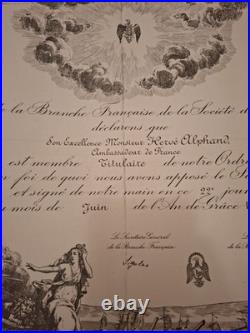 la Branche Française de la Société d
déclarons que
Son Excellence Monsieur Hervé Alphand,
Ambassadeur de France
est membre Titulaire de notre Ordre
foi de quoi nous avons apposé le S
et signé de notre main en ce 22e jour
mois de Juin de l'An de Grâce
Le Secrétaire Général
de la Branche Française
Le
de la B